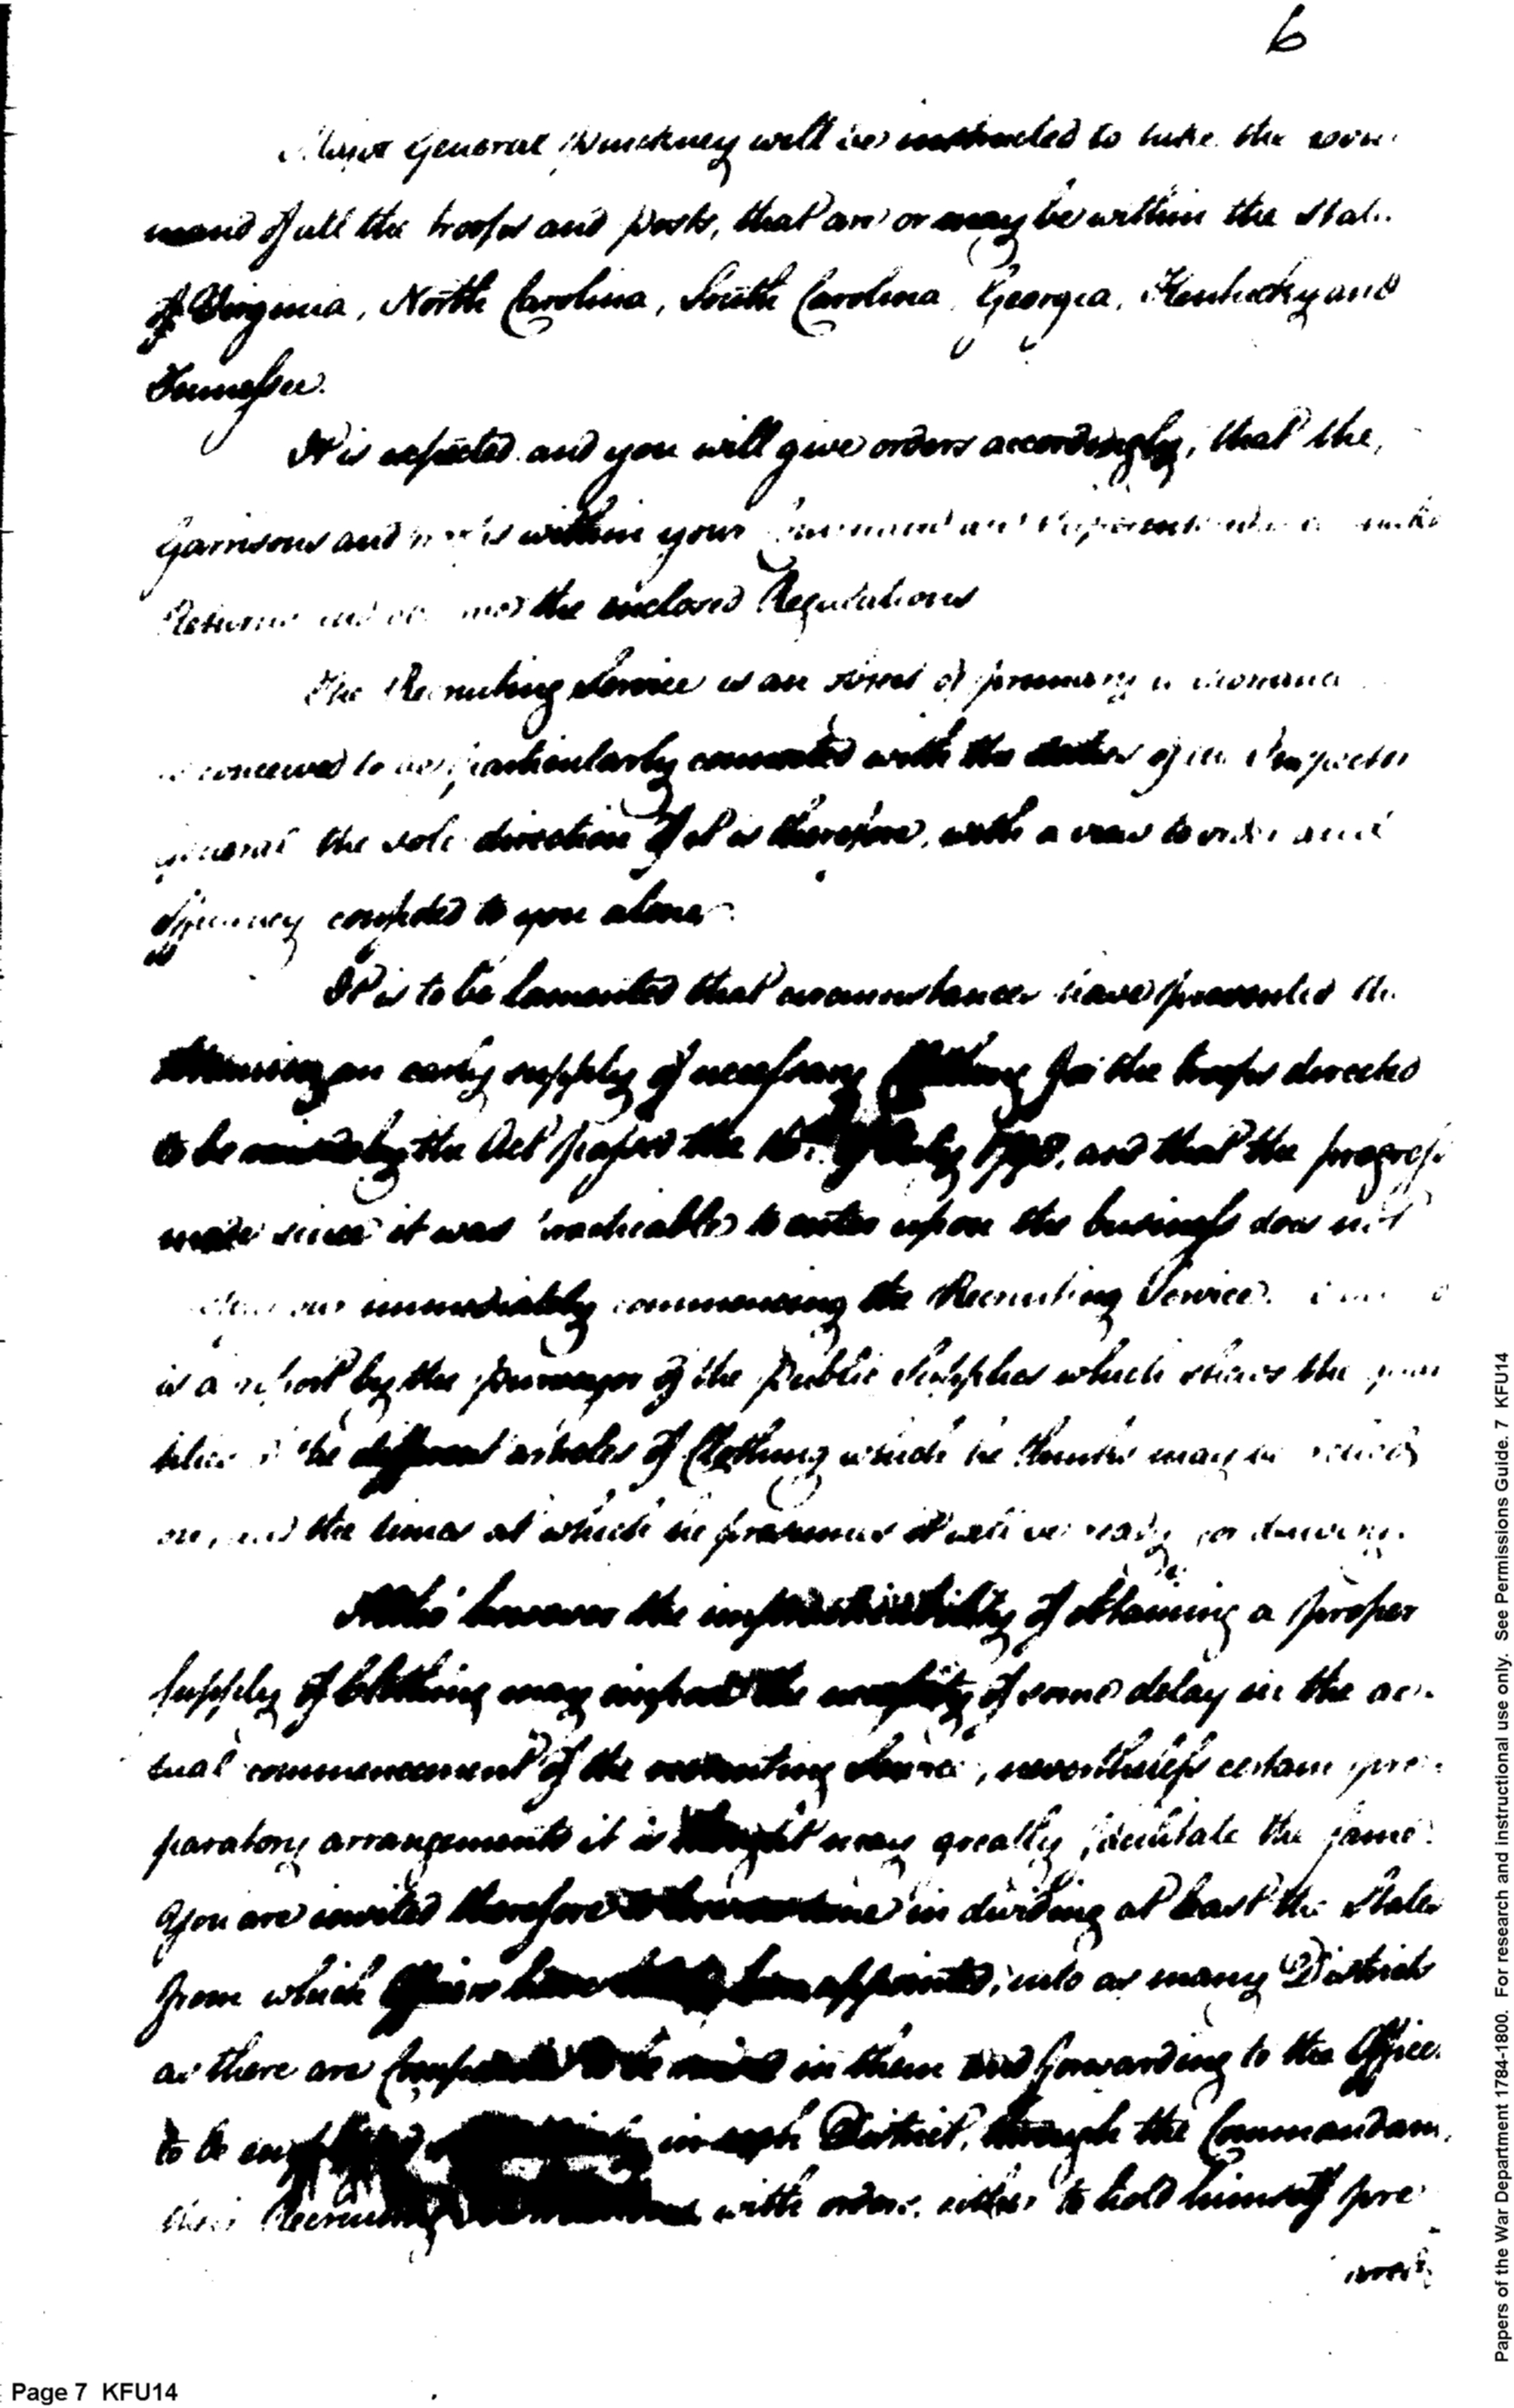 6
Major General Pinckney will be instructed to take the com
mand of all the troops and posts, that are or may be within the State
of Virginia, North Carolina, South Carolina, Georgia, Kentucky and
Tennessee.
It is expected and you will give orders accordingly, that the
Garrisons and posts within your
Returns the enclosed Regulations
The Recruiting Service is an object of primary
conceived to be particularly connected with the duties of the Inspector
general the sole direction of it is therefore, with a view to order and
efficiency confided to you alone
It is to be lamented that circumstances have prevented the
an early supply of necessary Clothing for the troops directed
to be raised by the Act passed the 16th of July 1798, and that the progress
made since it was practicable to enter upon the business does not
immediately commencing the Recruiting Service.
is a report by the purveyor of the Public Supplies which shews the quan
tities of the different articles of Clothing which he thinks may be
on, and the times at which he presumes it will be ready for delivery.
Altho' however the impracticability of obtaining a proper
Supply of Clothing may the necessity of some delay in the ac
tual commencement of the recruiting Service, nevertheless certain pre
paratory arrangements it is thought may greatly facilitate the same.
You are invited therefore in dividing at least the States
from which Officers have been appointed, into as many Districts
as there are Companies to be raised in them and forwarding to the Officer
to be in each District, through the Commandant,
Recruiting with orders, either to hold himself pre
Page 7 KFU14
Papers of the War Department 1784-1800. For research and instructional use only. See Permissions Guide. 7 KFU14